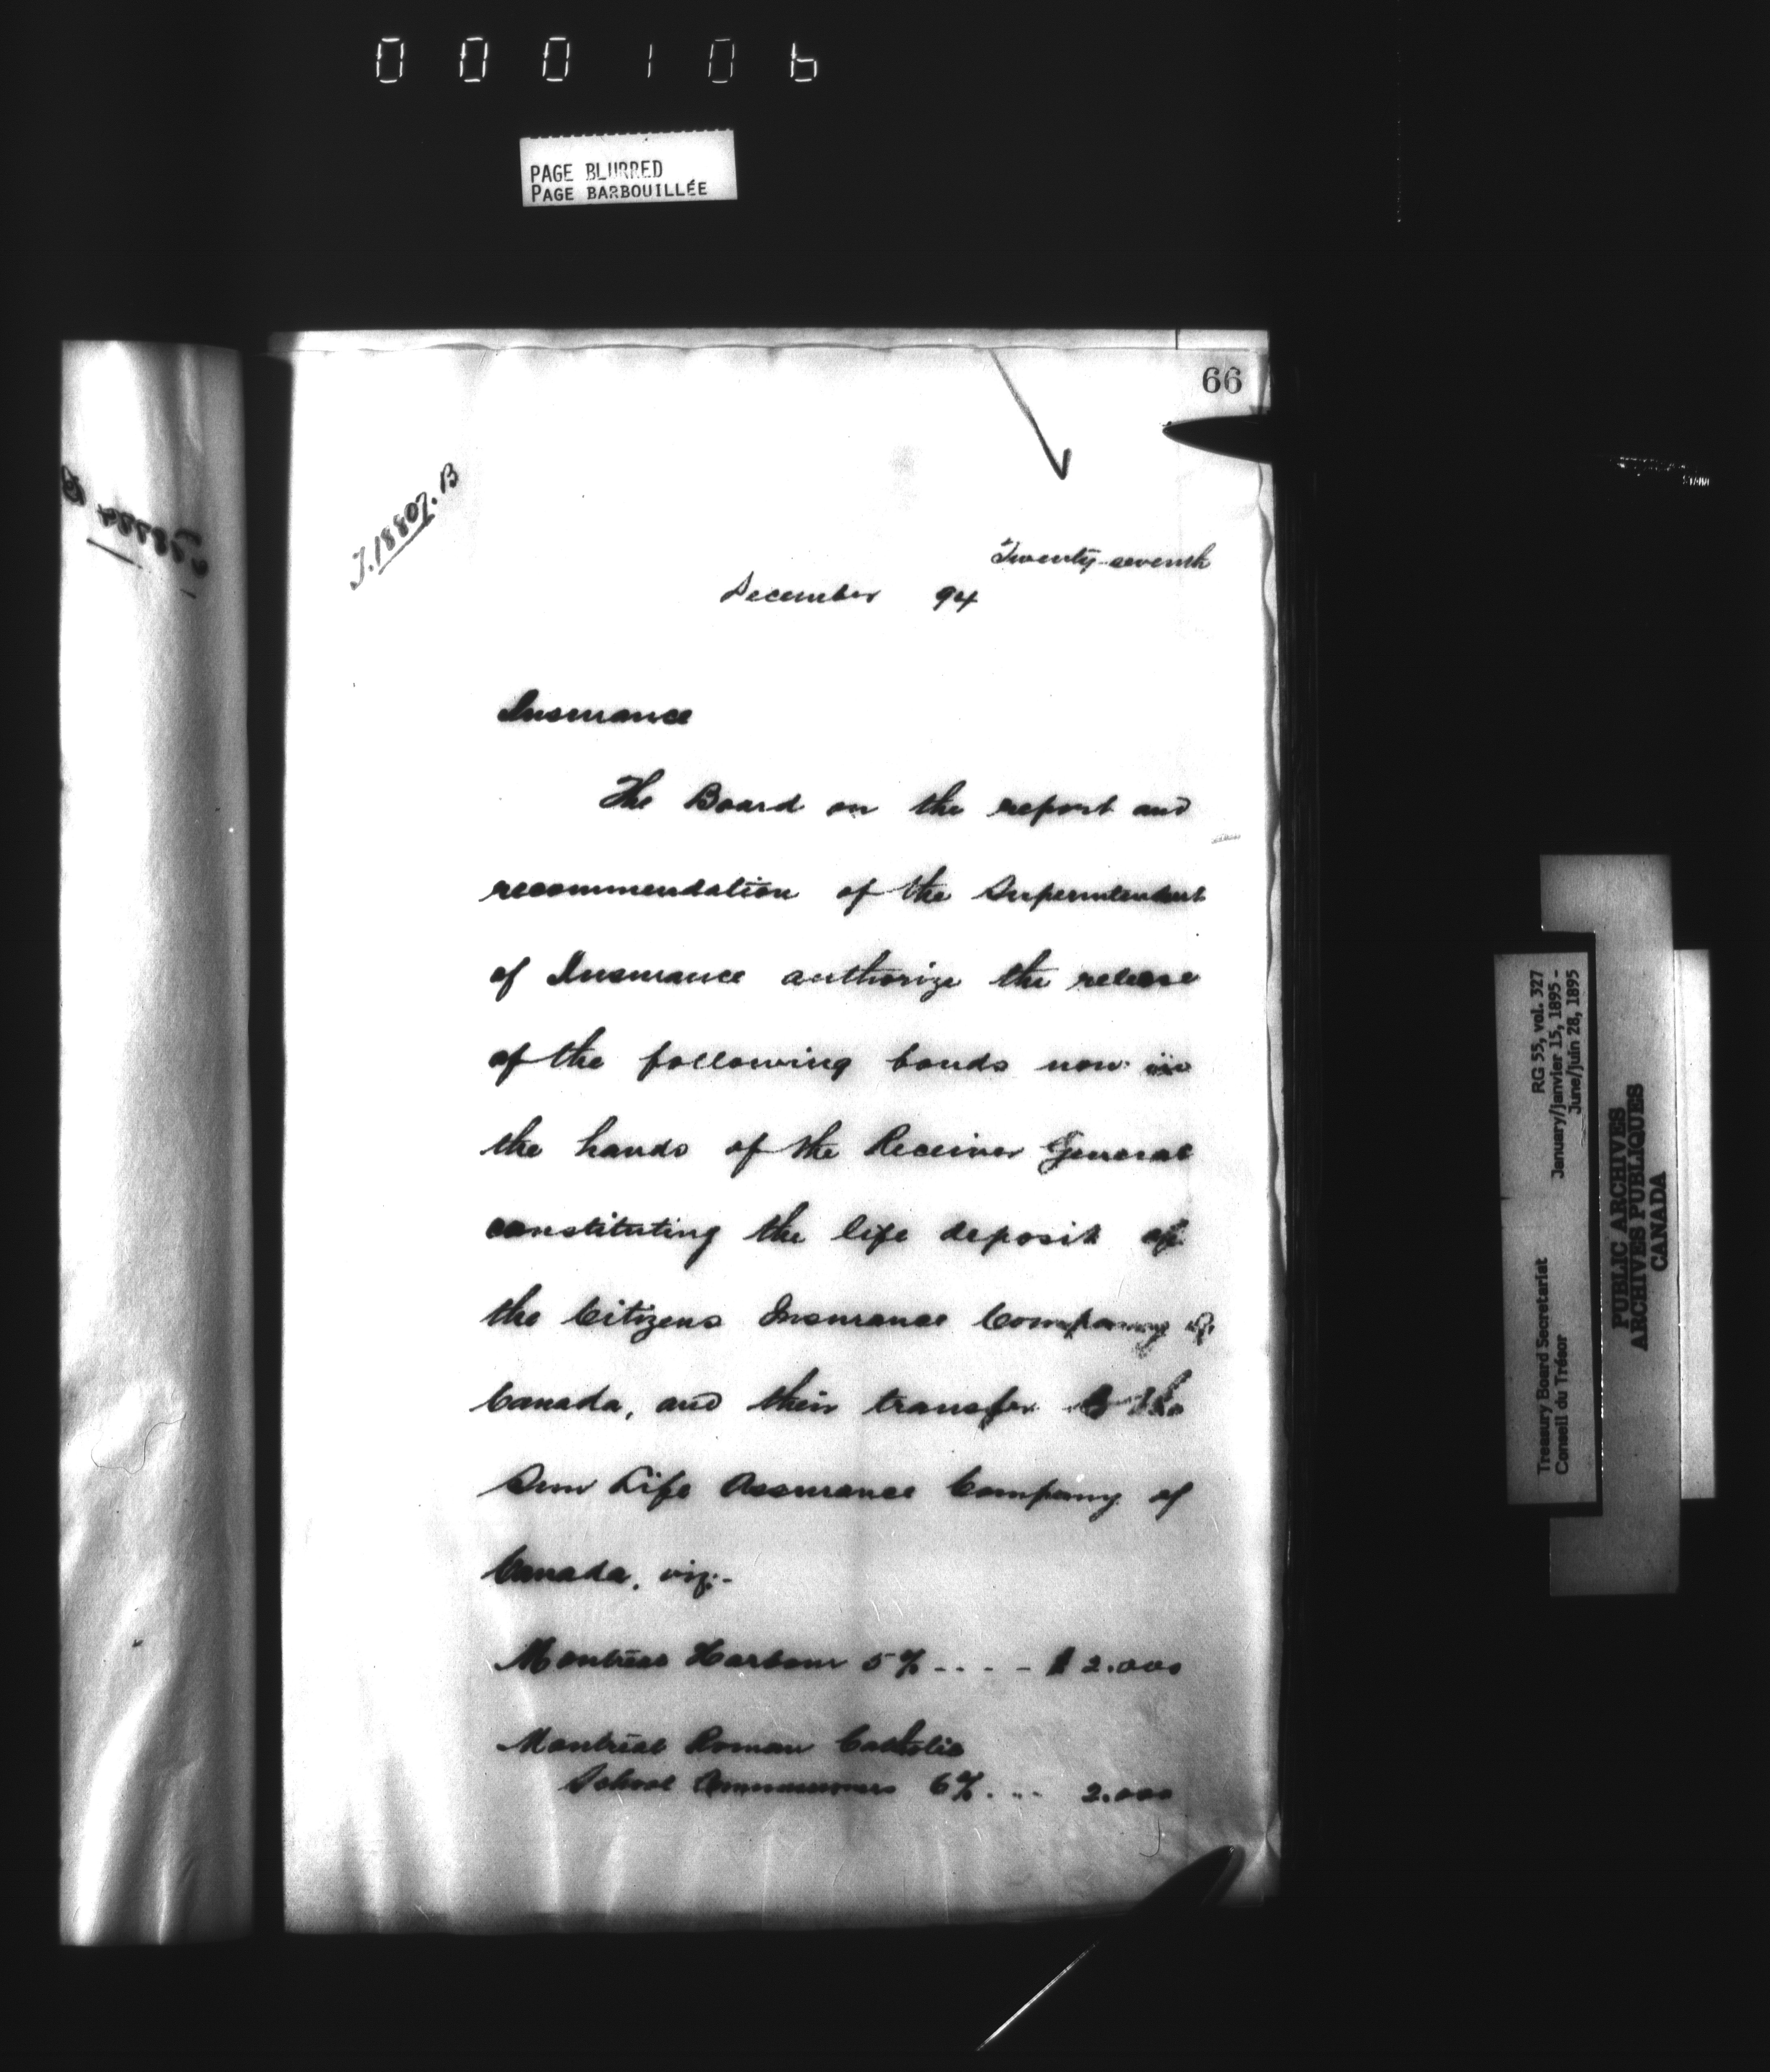 000106
PAGE BLURRED
PAGE BARBOUILLÉE
66
J.18807.B
Twenty-seventh
December 94
Insurance
The Board on the report and
recommendation of the Superintendent
of Insurance authorize the release
of the following bonds now in
the hands of the Receiver General
constituting the life deposit of
the Citizens Insurance Company of
Canada, and their transfer to the
Sun Life Assurance Company of
Canada, viz:-
Montreal Harbour 5% .... $ 2.000
Montreal Roman Catholic
School Commissioners 6% ... 2.000
Treasury Board Secretariat RG 55, vol. 327
Conseil du Trésor January/janvier 15, 1895 -
June/juin 28, 1895
PUBLIC ARCHIVES
ARCHIVES PUBLIQUES
CANADA